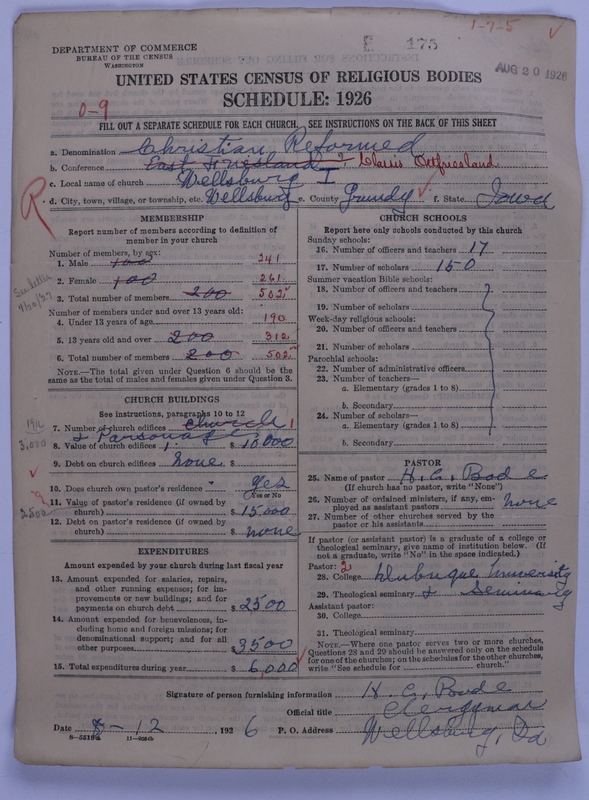 1-7-5
E 175
AUG 20 1926
DEPARTMENT OF COMMERCE
BUREAU OF THE CENSUS
WASHINGTON
UNITED STATES CENSUS OF RELIGIOUS BODIES
SCHEDULE: 1926
0-9
FILL OUT A SEPARATE SCHEDULE FOR EACH CHURCH. SEE INSTRUCTIONS ON THE BACK OF THIS SHEET
a. Denomination Christian Reformed
b. Conference East Friesland Classis Ostfriesland
c. Local name of church Wellsburg I
d. City, town, village, or township, etc. Wellsburg e. County Grundy f. State Iowa
R
MEMBERSHIP
Report number of members according to definition of
member in your church
Number of members, by sex:
1. Male 100 241
2. Female 100 261
3. Total number of members 200 502
See letter
9/20/27
Number of members under and over 13 years old:
4. Under 13 years of age 190
5. 13 years old and over 200 312
6. Total number of members 200 502
NOTE.—The total given under Question 6 should be the
same as the total of males and females given under Question 3.
CHURCH BUILDINGS
See instructions, paragraphs 10 to 12
7. Number of church edifices Church 1
& Parsonage 1.
1916
3,000
8. Value of church edifices $ 10,000
9. Debt on church edifices none $
10. Does church own pastor's residence yes
Yes or No
11. Value of pastor's residence (if owned by
church) $ 15,000
2500
12. Debt on pastor's residence (if owned by
church) $ none
EXPENDITURES
Amount expended by your church during last fiscal year
13. Amount expended for salaries, repairs,
and other running expenses; for im-
provements or new buildings; and for
payments on church debt $ 2500
14. Amount expended for benevolences, in-
cluding home and foreign missions; for
denominational support; and for all
other purposes $ 3500
15. Total expenditures during year $ 6,000
CHURCH SCHOOLS
Report here only schools conducted by this church
Sunday schools:
16. Number of officers and teachers 17
17. Number of scholars 150
Summer vacation Bible schools:
18. Number of officers and teachers
19. Number of scholars
Week-day religious schools:
20. Number of officers and teachers
21. Number of scholars
Parochial schools:
22. Number of administrative officers
23. Number of teachers—
a. Elementary (grades 1 to 8)
b. Secondary
24. Number of scholars—
a. Elementary (grades 1 to 8)
b. Secondary
PASTOR
25. Name of pastor H. C. Bode
(If church has no pastor, write "None")
26. Number of ordained ministers, if any, em-
ployed as assistant pastors none
27. Number of other churches served by the
pastor or his assistants
If pastor (or assistant pastor) is a graduate of a college or
theological seminary, give name of institution below. (If
not a graduate, write "No" in the space indicated.)
Pastor: 2
28. College Dubuque University
29. Theological seminary & Seminary
Assistant pastor:
30. College
31. Theological seminary
NOTE.—Where one pastor serves two or more churches,
Questions 28 and 29 should be answered only on the schedule
for one of the churches; on the schedules for the other churches,
write "See schedule for church."
Signature of person furnishing information H. C. Bode
Official title Clergyman
Date 8-12, 1926 P. O. Address Wellsburg, Ia
8-5519a